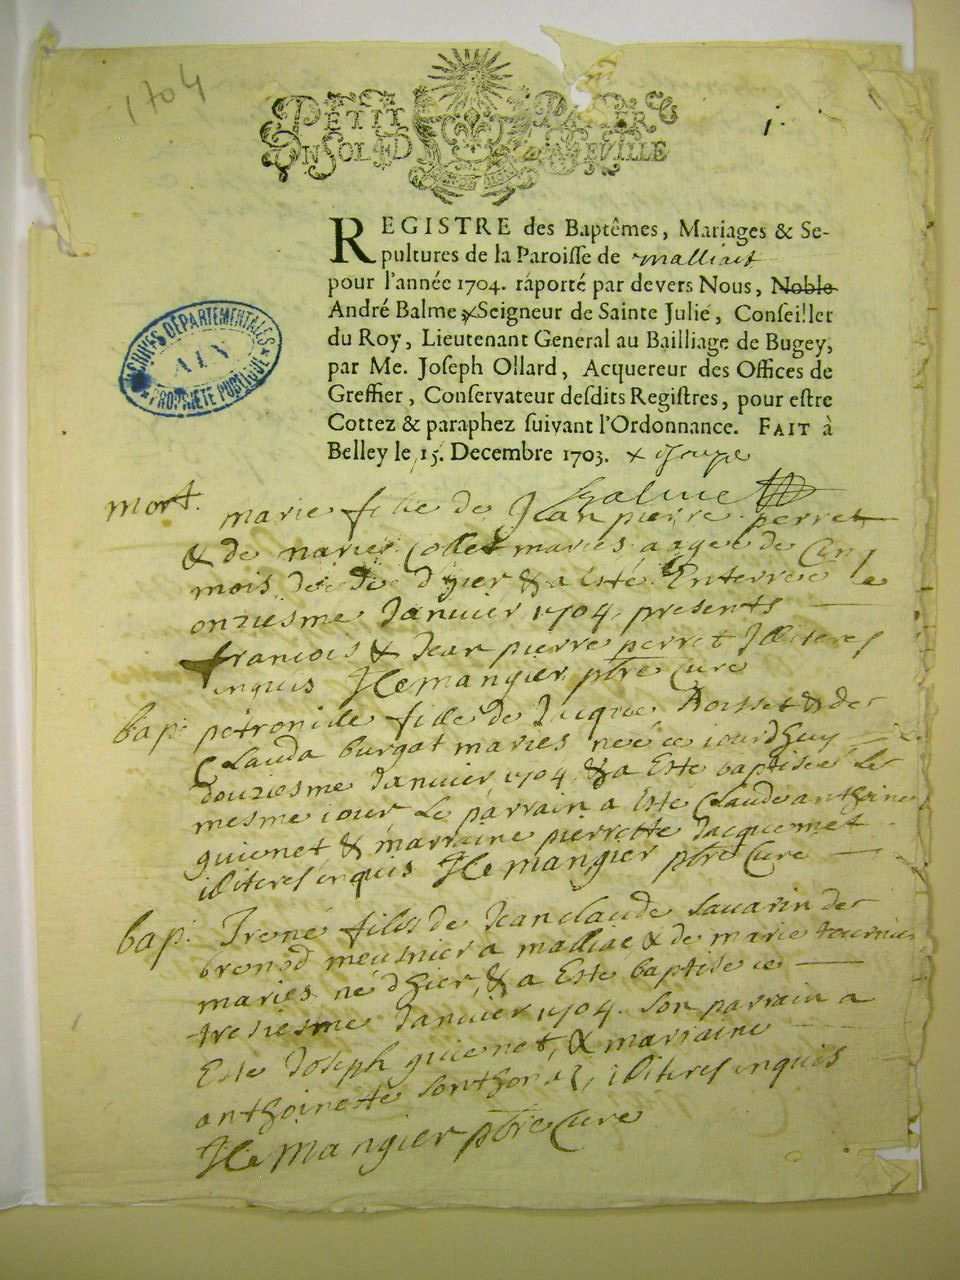 1704
PETIT PAPIER
UN SOL LED DEVILLE
1.
REGISTRE des Baptêmes, Mariages & Se-
pultures de la Paroiſſe de malliat
pour l'année 1704. ráporté par devers Nous, Noble
André Balme Seigneur de Sainte Julie, Conſeiller
du Roy, Lieutenant General au Bailliage de Bugey,
par Me. Joſeph Ollard, Acquereur des Offices de
Greffier, Conſervateur deſdits Regiſtres, pour eſtre
Cottez & paraphez ſuivant l'Ordonnance. FAIT à
Belley le 15. Decembre 1703.
ARCHIVES DÉPARTEMENTALES
AIN
PROPRIÉTÉ PUBLIQUE
Balme
mort. marie fille de Jean pierre perret
& de maries agee de Cinq
mois d'hier & a Esté Enterrée le
onziesme Janvier 1704. presents
francois & Jean pierre perret Illiteres
inquis He mangier pbre Cure
bap. petronille fille de Jaque Rosset & de
Clauda burgat maries née ce iourdhuy
douziesme Janvier 1704 & a Esté baptisée le
mesme iour Le parrain a Esté Claude anthoine
guienet & marraine pierrette Jacquemet
illiteres inquis He mangier pbre Cure
bap. Irené fils de Jean claude Savarin de
brenod meusnier a malliac & de marie
maries né d'hier, & a Esté baptisé ce
tresiesme Janvier 1704. Son parrain a
Esté Joseph guienet, & marraine
anthoinette Sonthonaz, illiteres inquis
He Mangier pbre Cure